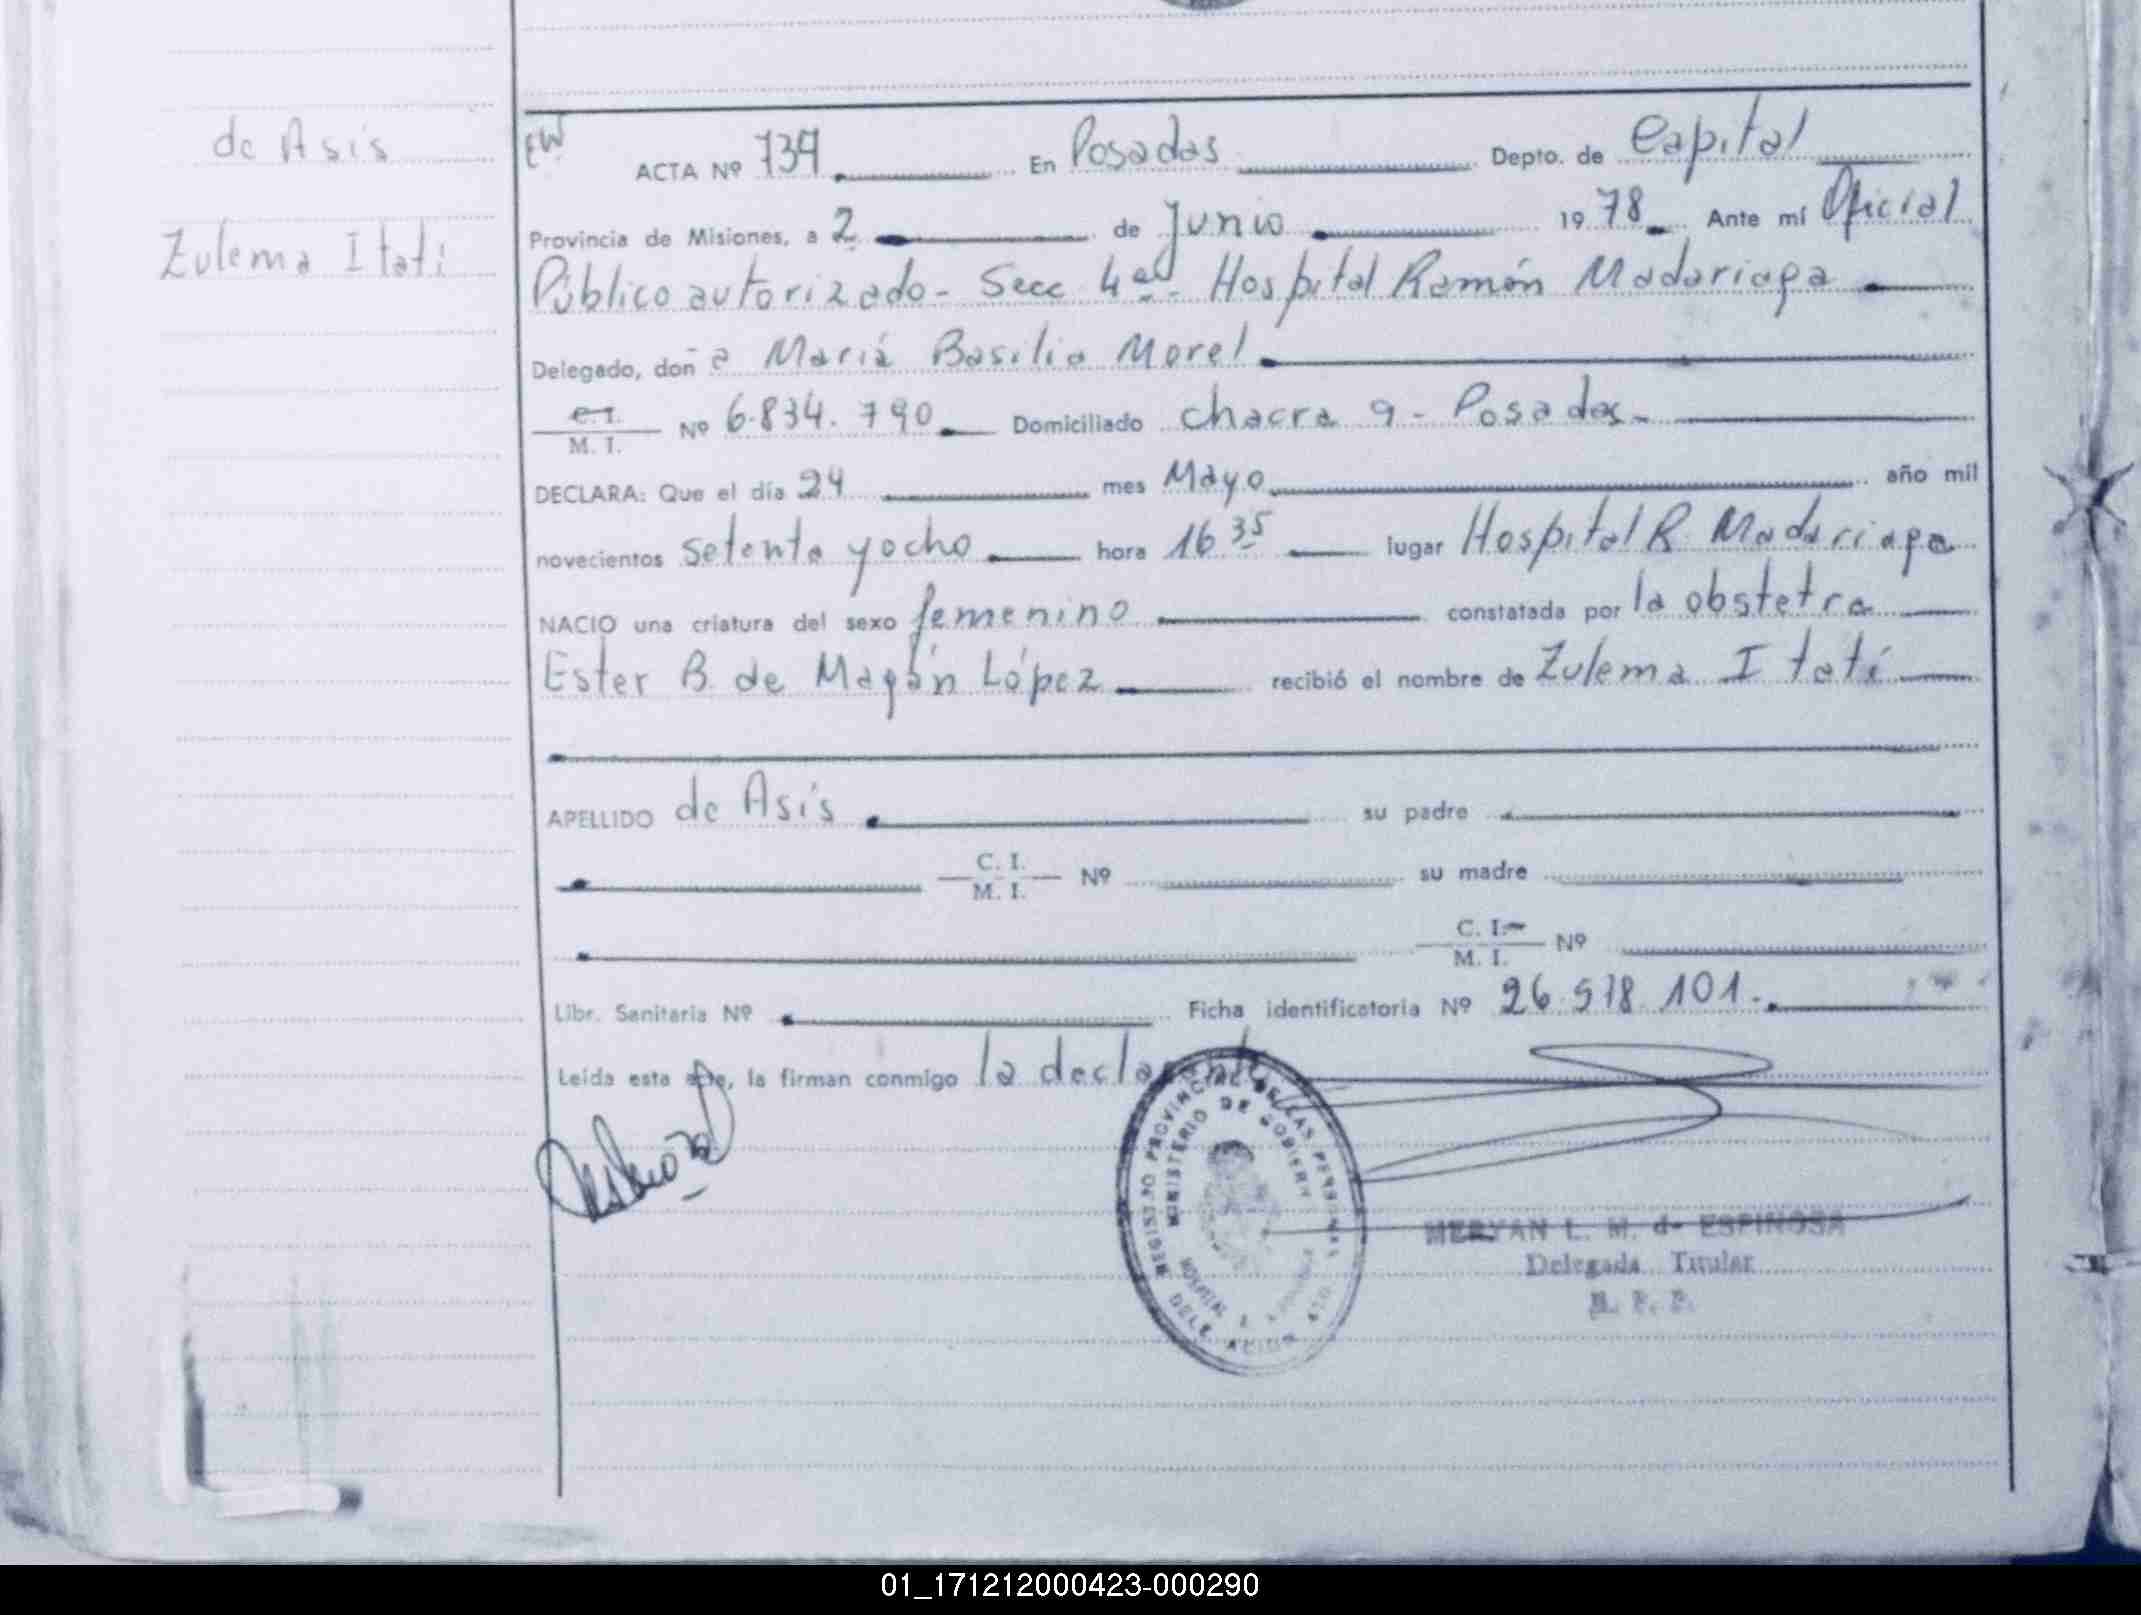 de Asís
Zulema Itatí
EW
ACTA Nº 739 En Posadas Depto. de Capital
Provincia de Misiones, a 2 de Junio 1978 Ante mí Oficial
Público autorizado - Secc 4ª - Hospital Ramón Madariaga
Delegado, doña María Basilia Morel
C. I.
M. I. Nº 6.834.790 Domiciliado chacra 9 - Posadas -
DECLARA: Que el día 24 mes Mayo año mil
novecientos setenta y ocho hora 16 35 lugar Hospital R Madariaga
NACIO una criatura del sexo femenino constatada por la obstetra
Ester B. de Magán López recibió el nombre de Zulema Itatí
APELLIDO de Asís su padre
C. I.
M. I. Nº su madre
C. I.
M. I. Nº
Libr. Sanitaria Nº Ficha identificatoria Nº 26.578.101.
Leída esta acta, la firman conmigo la declarante
REGISTRO PROVINCIAL DE LAS PERSONAS
MINISTERIO DE GOBIERNO
HOSPITAL
MERYAN L. M. de ESPINOSA
Delegada Titular
R. P. P.
01_171212000423-000290